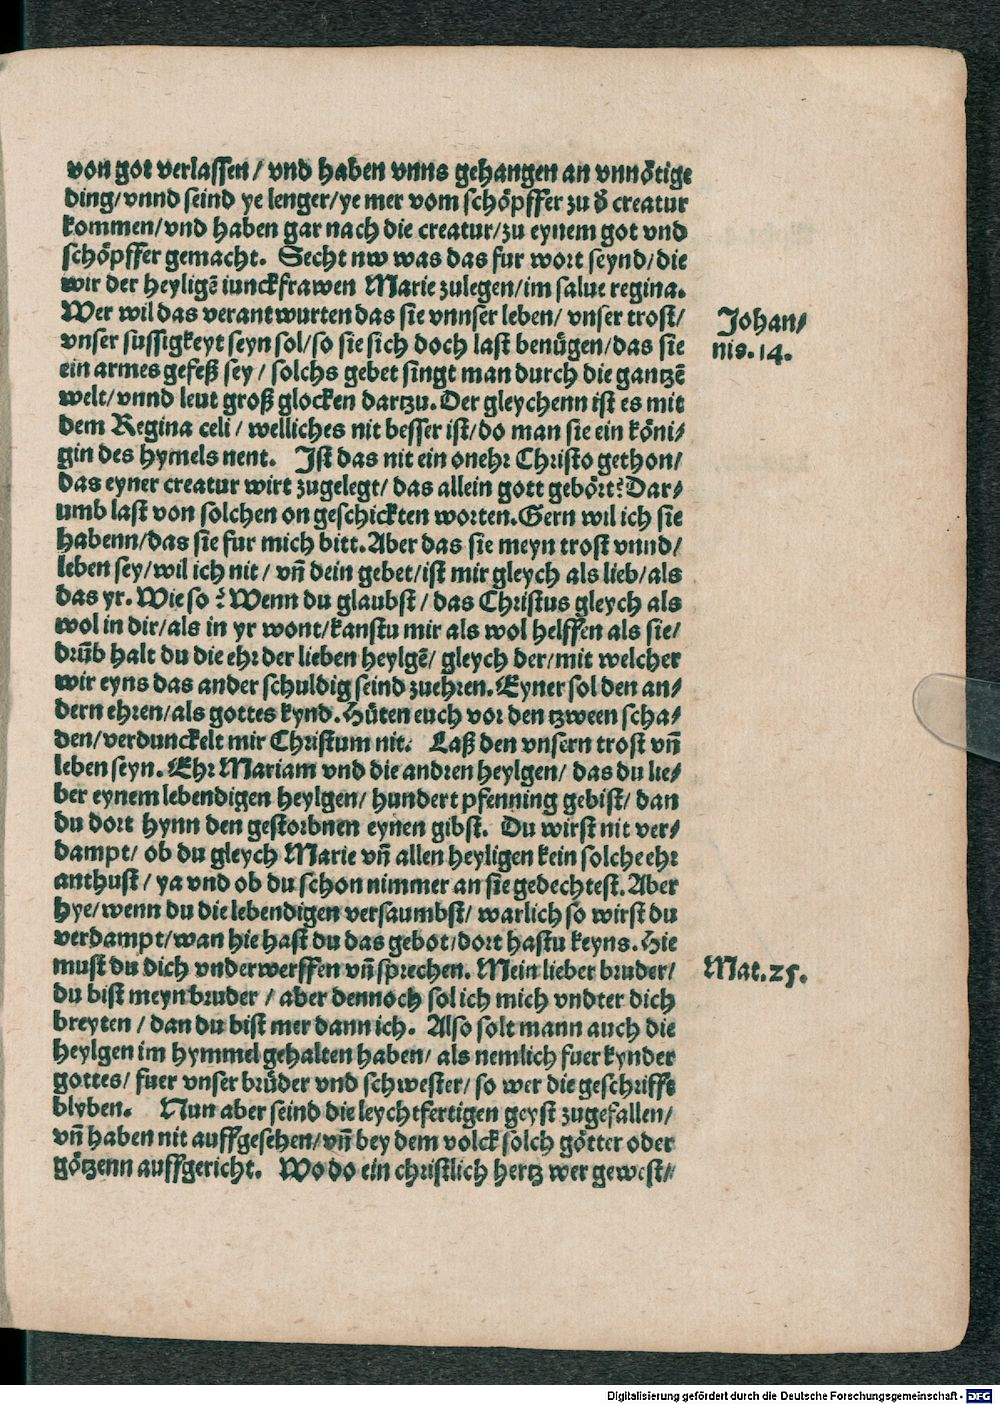 von got verlassen / vnd haben vnns gehangen an vnnötige
ding/vnnd seind ye lenger/ye mer vom schöpffer zu d̕ creatur
kommen/vnd haben gar nach die creatur/zu eynem got vnd
schöpffer gemacht. Secht nw was das fur wort seynd/die
wir der heyligē iunckfrawen Marie zulegen/im salue regina.
Wer wil das verantwurten das sie vnnser leben/ vnser trost/
vnser sussigkeyt seyn sol/so sie sich doch last benügen/das sie
ein armes gefeß sey / solchs gebet singt man durch die gantzē
welt/vnnd leut groß glocken dartzu. Der gleychenn ist es mit
dem Regina celi / welliches nit besser ist/do man sie ein köni/
gin des hymels nent. Ist das nit ein onehr Christo gethon/
das eyner creatur wirt zugelegt/ das allein gott gebört? Dar/
umb last von solchen on geschickten worten. Gern wil ich sie
habenn/das sie fur mich bitt. Aber das sie meyn trost vnnd/
leben sey/wil ich nit / vn̄ dein gebet/ist mir gleych als lieb/als
das yr. Wie so ? Wenn du glaubst / das Christus gleych als
wol in dir/als in yr wont/kanstu mir als wol helffen als sie/
drūb halt du die ehr der lieben heylgē/ gleych der/mit welcher
wir eyns das ander schuldig seind zuehren. Eyner sol den an/
dern ehren/als gottes kynd. Hüten euch vor den tzween scha/
den/verdunckelt mir Christum nit. Laß den vnsern trost vn̄
leben seyn. Ehr Mariam vnd die andren heylgen/ das du lie/
ber eynem lebendigen heylgen/ hundert pfenning gebist/ dan
du dort hynn den gestorbnen eynen gibst. Du wirst nit ver/
dampt/ ob du gleych Marie vn̄ allen heyligen kein solche ehr
anthust / ya vnd ob du schon nimmer an sie gedechtest. Aber
hye/wenn du die lebendigen versaumbst/ warlich so wirst du
verdampt/wan hie hast du das gebot/dort hastu keyns. Hie
must du dich vnderwerffen vn̄ sprechen. Mein lieber bruder/
du bist meyn bruder / aber dennoch sol ich mich vndter dich
breyten / dan du bist mer dann ich. Also solt mann auch die
heylgen im hymmel gehalten haben/ als nemlich fuer kynder
gottes/ fuer vnser brüder vnd schwester/ so wer die geschrifft
blyben. Nun aber seind die leychtfertigen geyst zugefallen/
vn̄ haben nit auffgesehen/vn̄ bey dem volck solch götter oder
götzenn auffgericht. Wo do ein christlich hertz wer gewest/
Johan/
nis. 14.
Mat. 25.
Digitalisierung gefördert durch die Deutsche Forschungsgemeinschaft - DFG